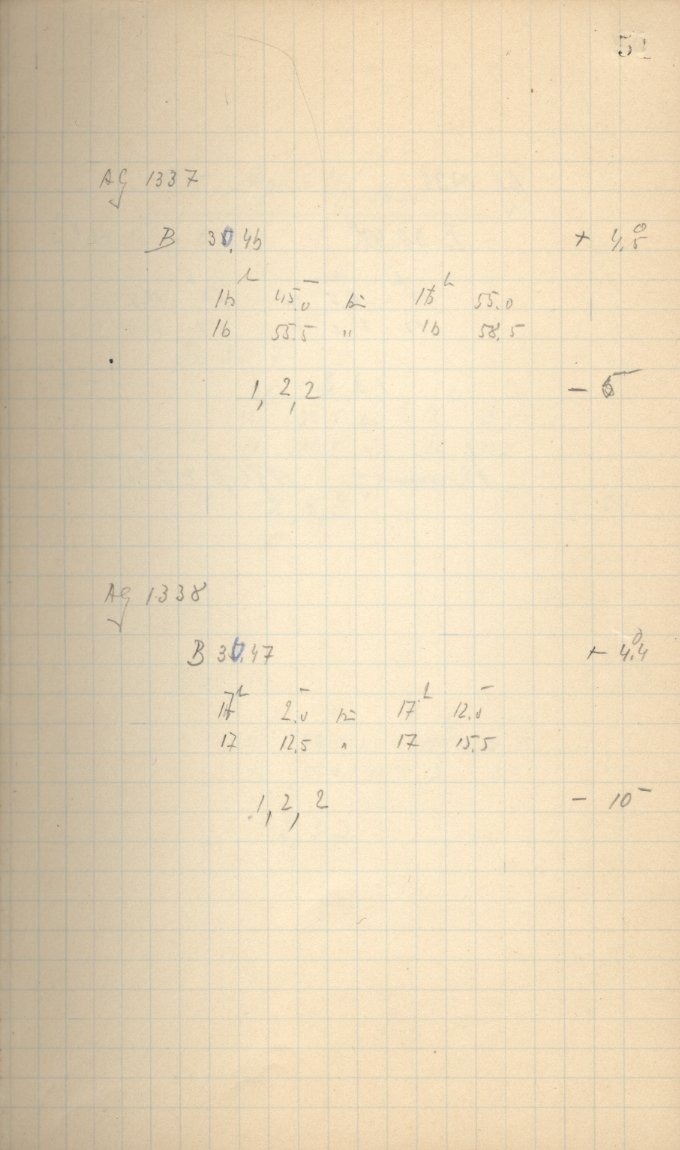 AG 1337
B 30,46 + 4,5°
16ʰ 45,0 bis 16ʰ 55.0
16 55.5 " 16 58,5
1, 2, 2 – 6
AG 1338
B 30,47 + 4,4°
17ʰ 2,0 bis 17ʰ 12,0
17 12,5 " 17 15,5
1, 2, 2 – 10